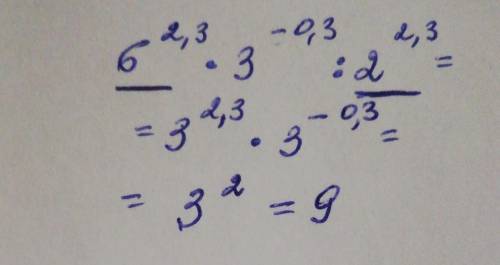 6^2,3 · 3^-0,3 : 2^2,3 =
= 3^2,3 · 3^-0,3 =
= 3^2 = 9